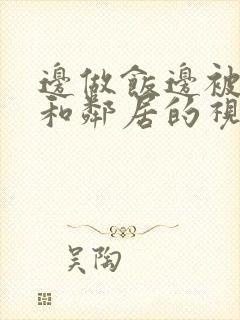 邊做飯邊被
和鄰居的視
吴陶